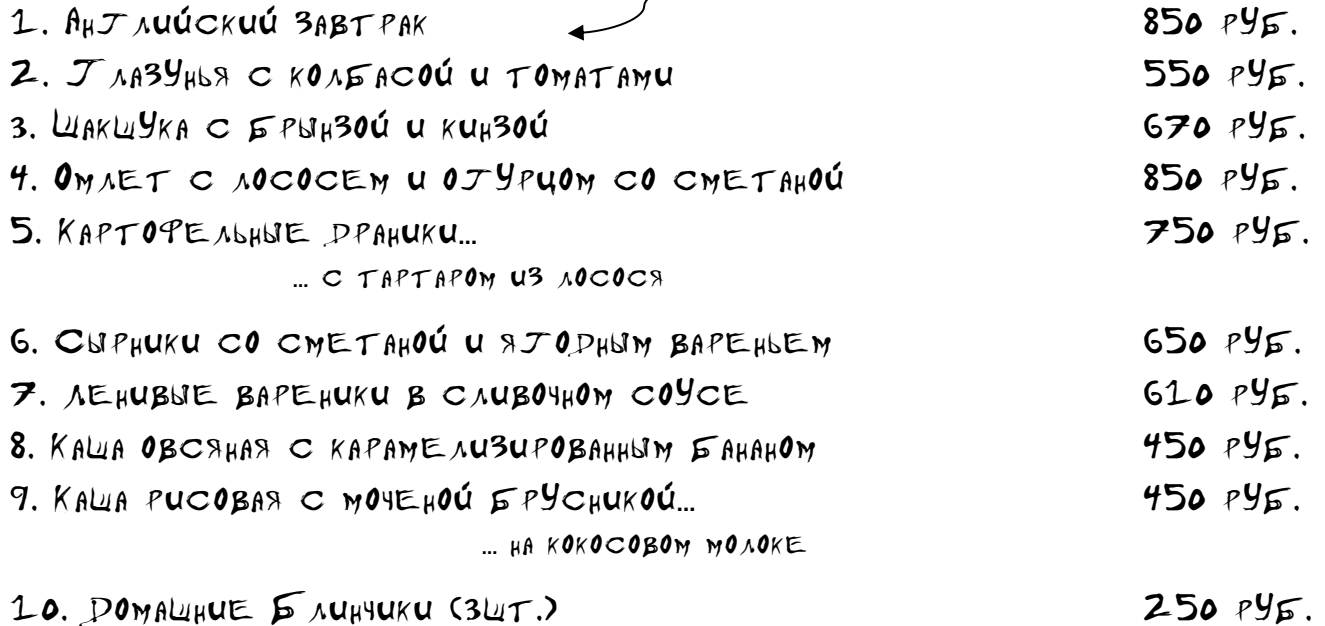 1. Английский завтрак 850 руб.
2. Глазунья с колбасой и томатами 550 руб.
3. Шакшука с брынзой и кинзой 670 руб.
4. Омлет с лососем и огурцом со сметаной 850 руб.
5. Картофельные драники... 750 руб.
... с тартаром из лосося
6. Сырники со сметаной и ягодным вареньем 650 руб.
7. Ленивые вареники в сливочном соусе 610 руб.
8. Каша овсяная с карамелизированным бананом 450 руб.
9. Каша рисовая с моченой брусникой... 450 руб.
... на кокосовом молоке
10. Домашние блинчики (3шт.) 250 руб.